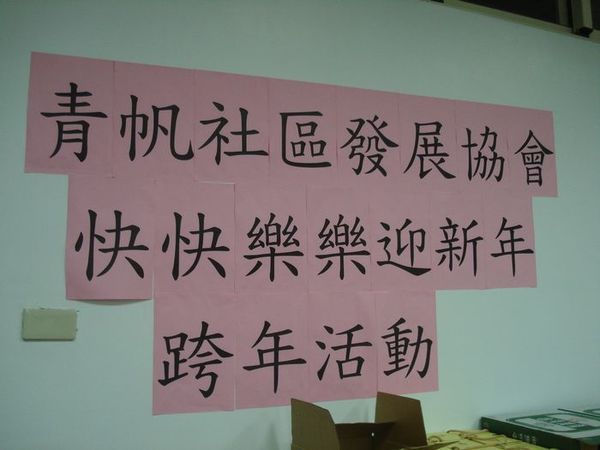 青帆社區發展協會
快快樂樂迎新年
跨年活動